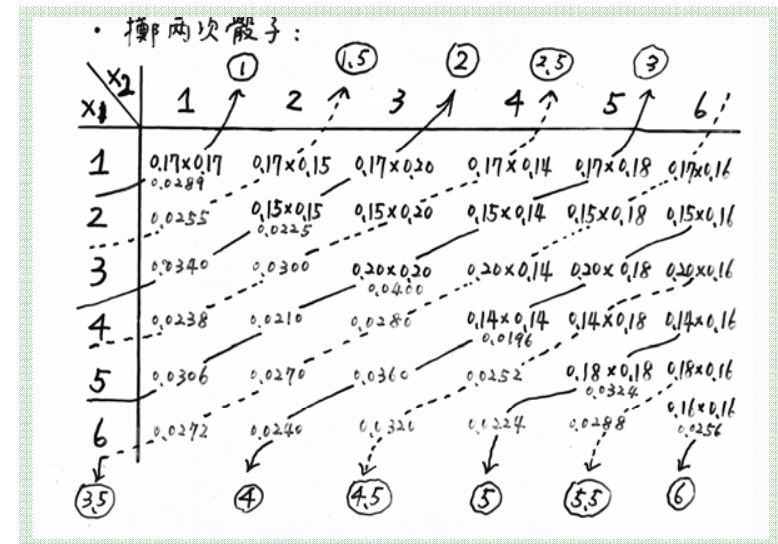 · 擲兩次骰子:
① ①.5 ② ②.5 ③
X₂
X₁ 1 2 3 4 5 6
1 0.17×0.17 0.17×0.15 0.17×0.20 0.17×0.14 0.17×0.18 0.17×0.16
0.0289
2 0.0255 0.15×0.15 0.15×0.20 0.15×0.14 0.15×0.18 0.15×0.16
0.0225
3 0.0340 0.0300 0.20×0.20 0.20×0.14 0.20×0.18 0.20×0.16
0.0400
4 0.0238 0.0210 0.0280 0.14×0.14 0.14×0.18 0.14×0.16
0.0196
5 0.0306 0.0270 0.0360 0.0252 0.18×0.18 0.18×0.16
0.0324
0.16×0.16
6 0.0272 0.0240 0.0320 0.0224 0.0288 0.0256
3.5 4 4.5 5 5.5 6